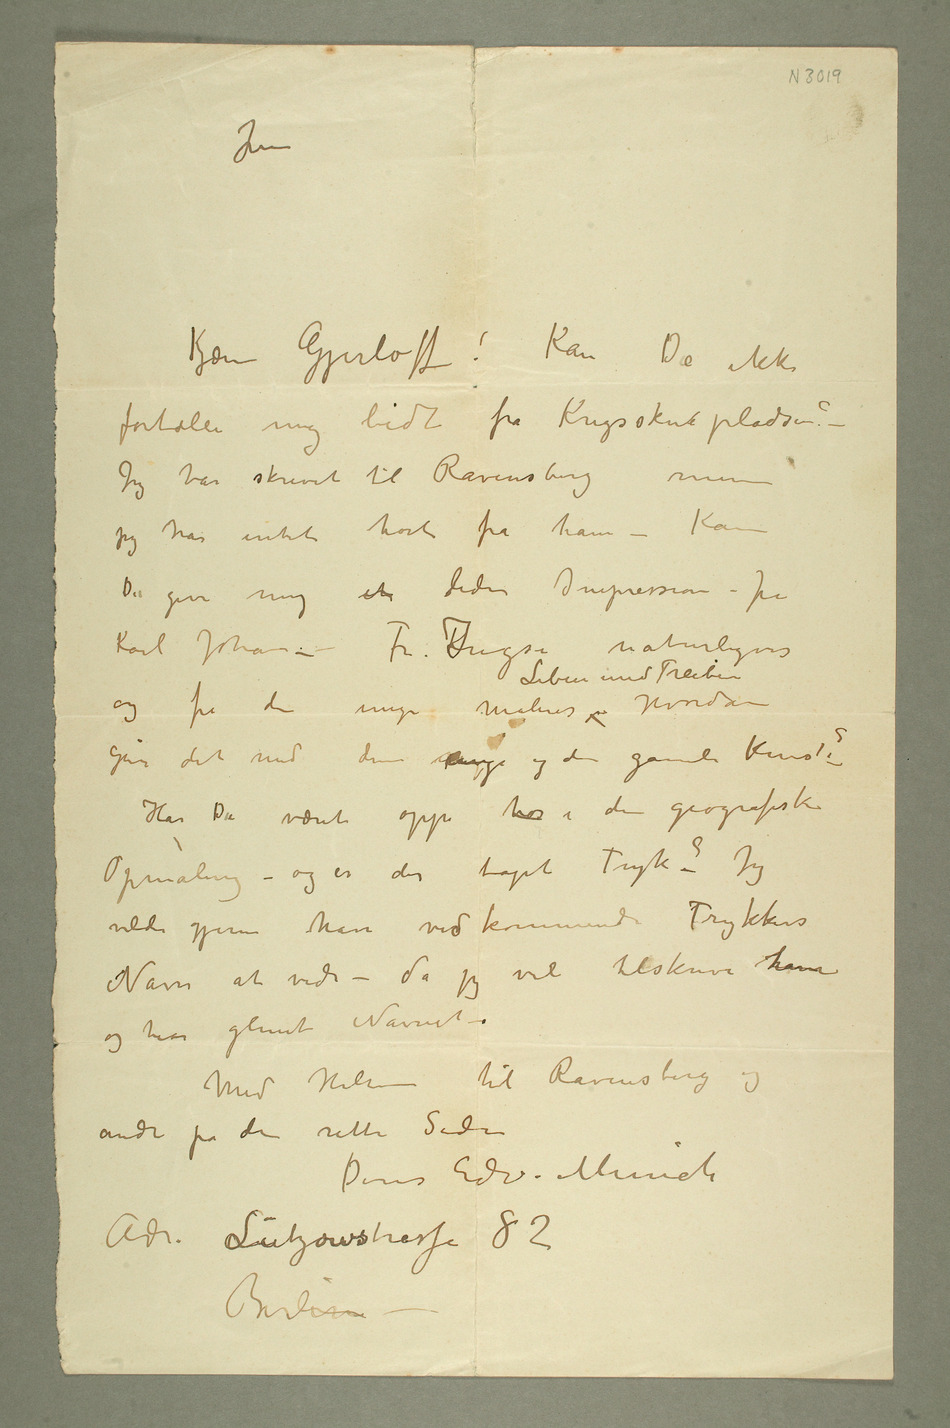 N 3019
Kjære Gjerløff! Kan De ikke
fortælle mig lidt fra Krigsskuepladsen? –
Jeg har skrevet til Ravensberg men
jeg har intet hørt fra ham – Kan
De give mig et liden Impression – fra
Karl Johan: – Fr. Thrygse naturligvis
Leben und Treiben
og fra den unge maleres – Hvordan
går det med den unge og den gamle Kunst? –
Har De været oppe hos i den geografiske
Opmåling – og er der taget Tryk? – Jeg
vilde gjerne have vedkommende Trykkers
Navn at vide – da jeg vil tilskrive ham
og har glemt Navnet –
Med Hilsen til Ravensberg og
andre på den rette Side
Deres Edv. Munch
Adr. Lützowstrasse 82
Berlin –